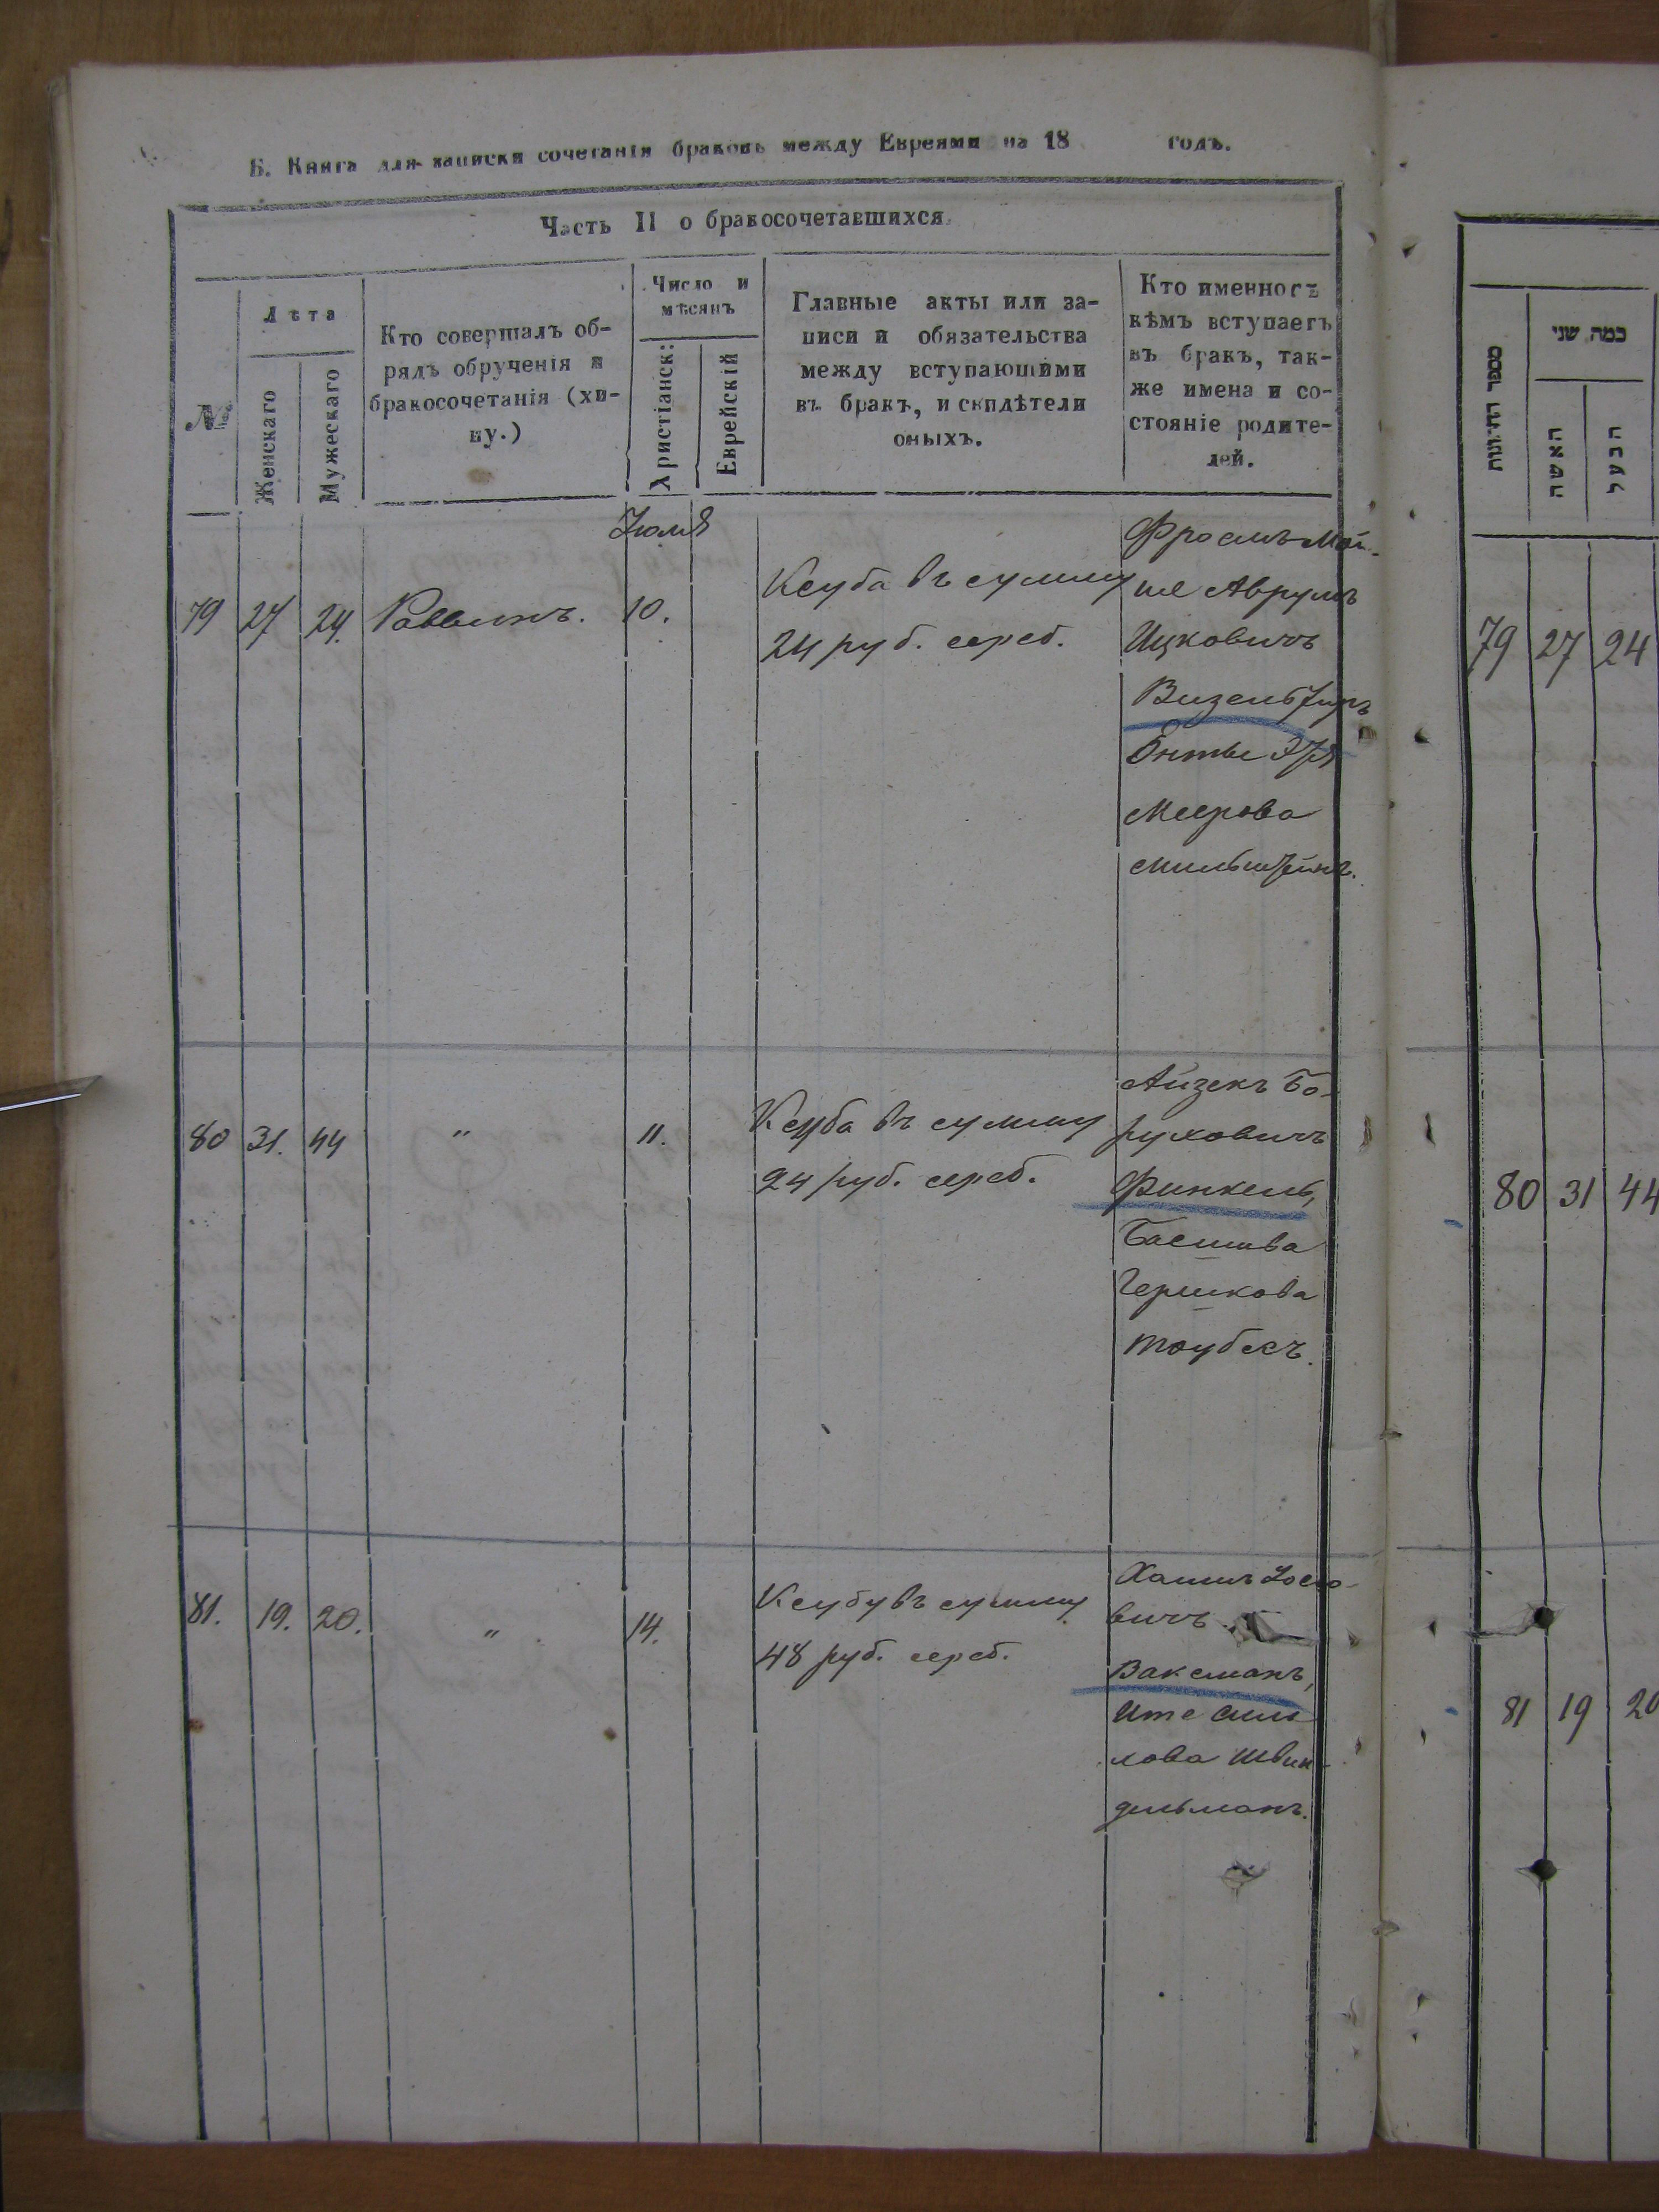 Б. Книга для записки сочетанія браковъ между Евреями на 18 годъ.
Часть II о бракосочетавшихся
№
Лѣта
Женскаго
Мужескаго
Кто совершалъ об-
рядъ обрученія и
бракосочетанія (хи-
пу.)
Число и
мѣсяцъ
Христіанск:
Еврейскій
Главные акты или за-
писи и обязательства
между вступающими
въ бракъ, и свидѣтели
оныхъ.
Кто именно съ
кѣмъ вступаетъ
въ бракъ, так-
же имена и со-
стояніе родите-
лей.
Іюля
79 27 24. Раввинъ. 10.
Ксуба въ сумму
24 руб. сереб.
Фроимъ Мой-
ше Аврумъ
Ицковичъ
Меерова
Мильштейнъ.
80 31. 44 " 11.
Ксуба въ сумму
24 руб. сереб.
Айзекъ Бо-
руховичъ
Финкель,
Басшива
Гершкова
Таубесъ.
81. 19. 20. " 14.
Ксубу въ сумму
48 руб. сереб.
Хаимъ Іосіо-
вичъ
Ваксманъ,
Ите
лова Швин-
дельманъ.
כמה שני
האשה
הבעל
79 27 24
80 31 44
81 19 20